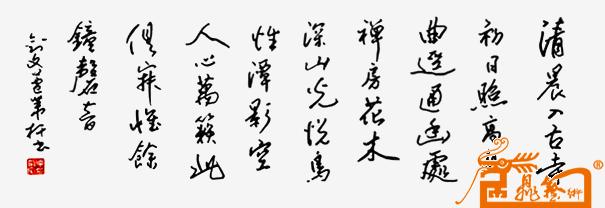 清晨入古寺
初日照高
曲逕通幽處
禪房花木
深山光悦鳥
性潭影空
人心萬籟此
俱寂惟餘
鐘磬音